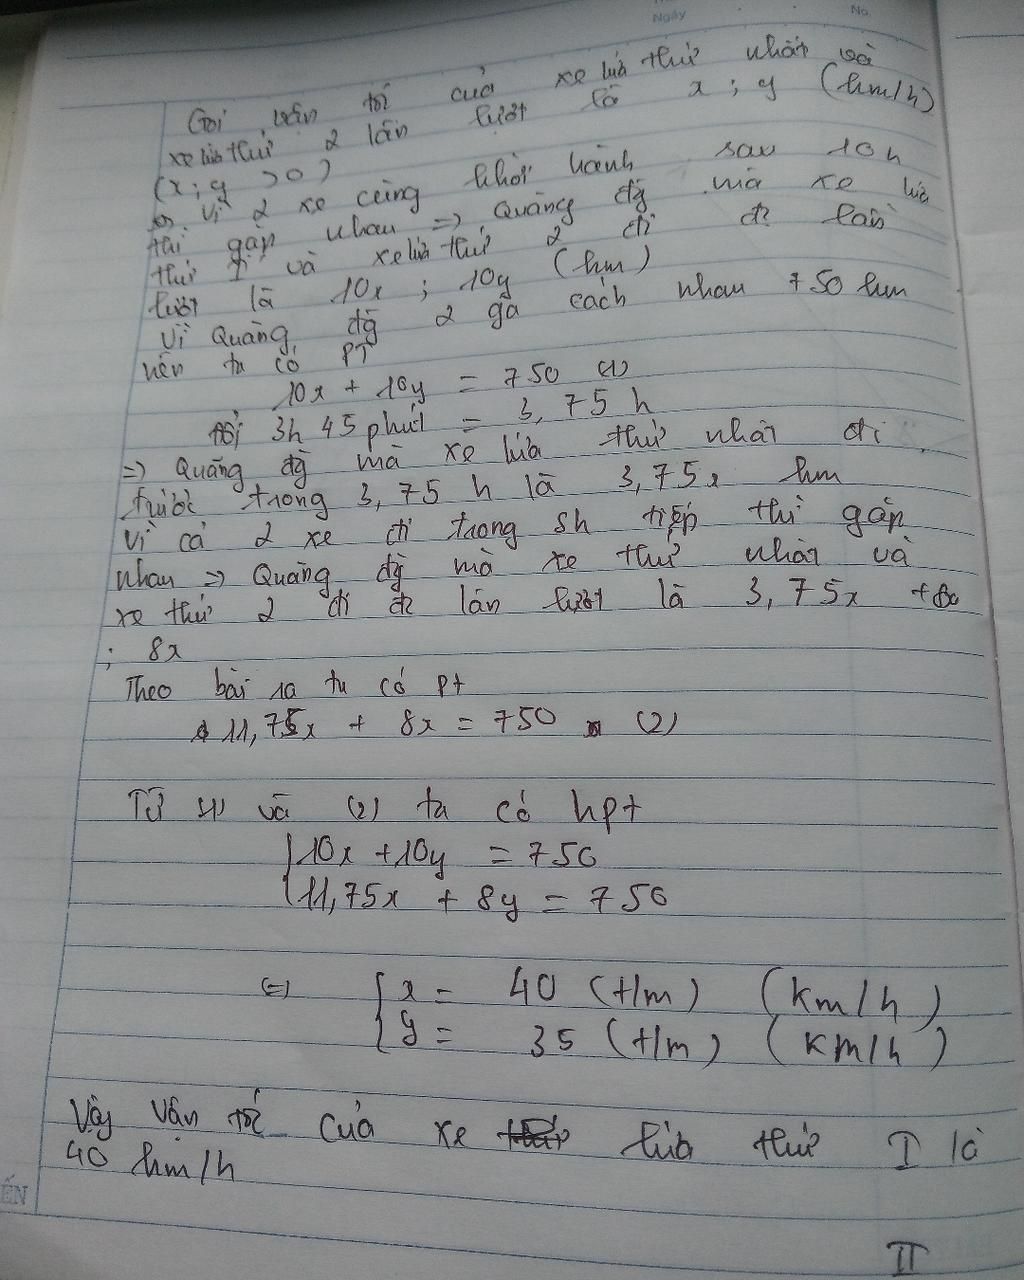 Ngày No.
Gọi vận tốc của xe lửa thứ nhất và
xe lửa thứ 2 lần lượt là x ; y (km/h)
(x ; y > 0)
Vì 2 xe cùng khởi hành sau 10h
thì gặp nhau => Quãng đg mà xe lửa
thứ I và xe lửa thứ 2 đi đc lần
lượt là 10x ; 10y (km)
Vì Quãng đg 2 ga cách nhau 750 km
nên ta có PT
10x + 10y = 750 (1)
Đổi 3h 45 phút = 3,75 h
=> Quãng đg mà xe lửa thứ nhất đi
trước trong 3,75 h là 3,75x km
Vì cả 2 xe đi trong 8h tiếp thì gặp
nhau => Quãng đg mà xe thứ nhất và
xe thứ 2 đi đc lần lượt là 3,75x + 8x
; 8x
Theo bài ra ta có pt
11,75x + 8x = 750 (2)
Từ (1) và (2) ta có hpt
10x + 10y = 750
11,75x + 8y = 750
<=> x = 40 (t/m) (km/h)
y = 35 (t/m) (km/h)
Vậy vận tốc của xe lửa thứ I là
40 km/h
ẾN
II